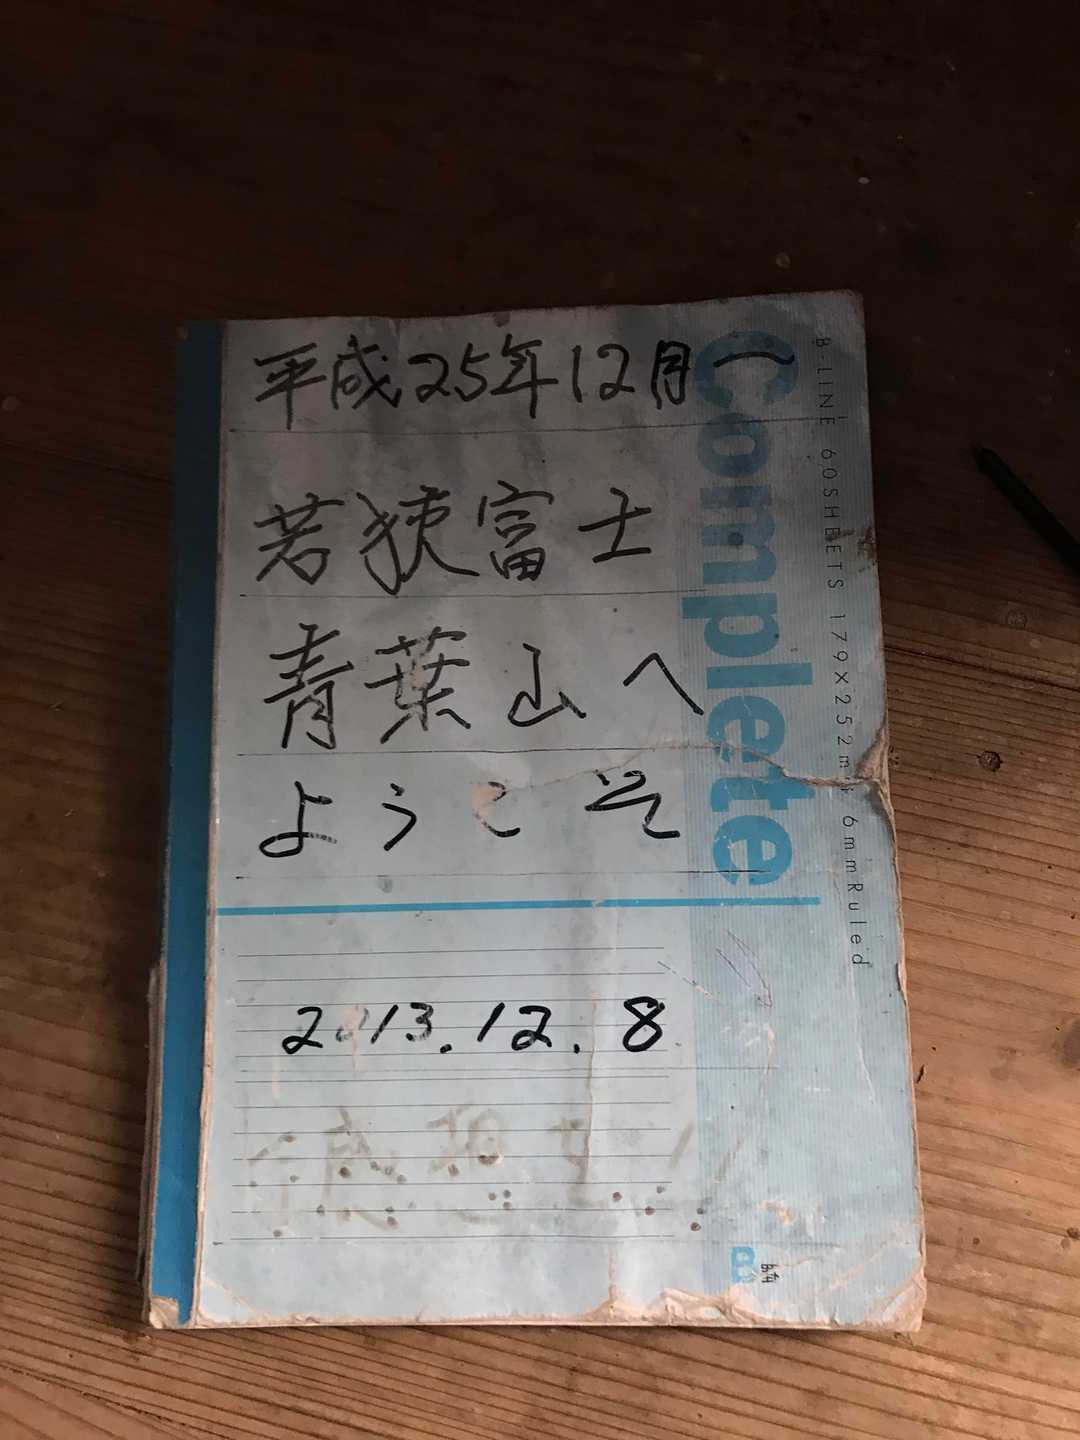 平成25年12月〜
若狭富士
青葉山へ
ようこそ
2013.12.8
Complete
B-LINE 60SHEETS 179×252mm 6mmRuled
B